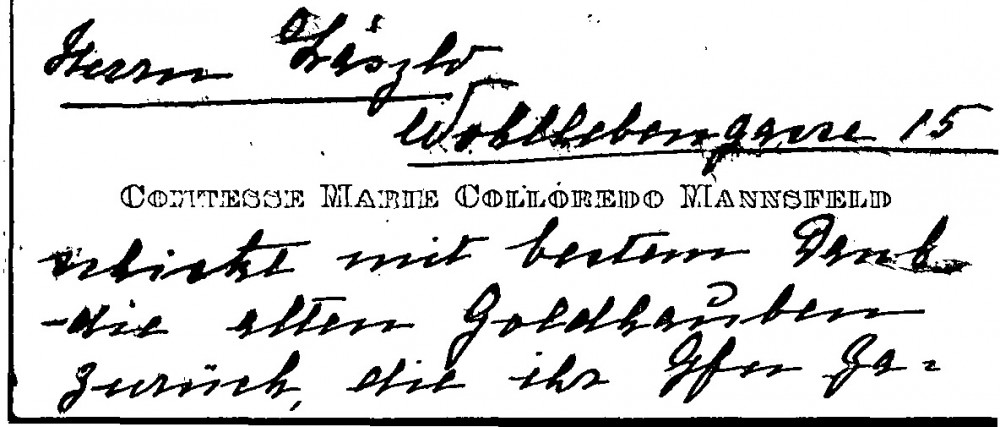 Herrn László
Wohllebengasse 15
COMTESSE MARIE COLLOREDO MANNSFELD
schickt mit bestem Dank
die alten Goldhauben
zurück, die ihr